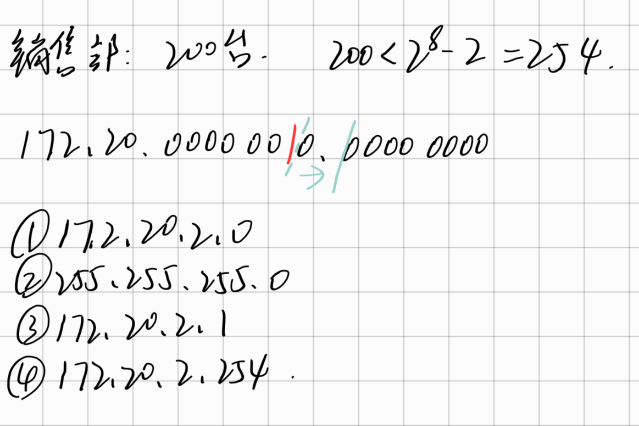 销售部: 200台. 200<2⁸-2=254.
172.20.0000 0010.0000 0000
→
①172.20.2.0
②255.255.255.0
③172.20.2.1
④172.20.2.254.